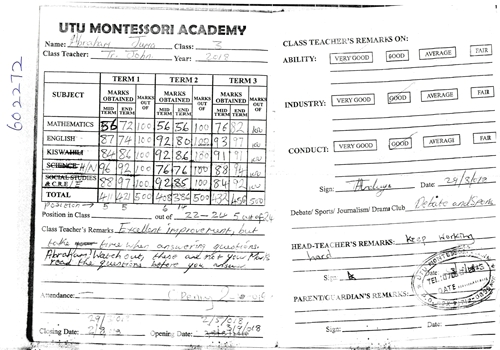 UTU MONTESSORI ACADEMY
Name: Abraham Juma Class: 3
Class Teacher: Tr. John Year: 2018
TERM 1 TERM 2 TERM 3
SUBJECT MARKS OBTAINED MARKS OUT OF MARKS OBTAINED MARKS OUT OF MARKS OBTAINED MARKS OUT OF
MID TERM END TERM MID TERM END TERM MID TERM END TERM
MATHEMATICS 56 72 100 56 56 100 76 82 100
ENGLISH 87 74 100 92 80 100 93 97 100
KISWAHILI 84 86 100 92 86 100 91 91 100
SCIENCE H/N 96 92 100 76 76 100 88 94 100
SOCIAL STUDIES
A C.R.E/E 88 97 100 92 86 100 84 92 100
TOTAL 500 500 500
Position → 5 5
Position in Class out of 22-24 5 out of 24
Class Teacher's Remarks Excellent improvement, but
take your time when answering questions.
Abraham! Watch out, these are not your Marks
read the questions before you answer
Attendance:
Closing Date: Opening Date:
602272
CLASS TEACHER'S REMARKS ON:
ABILITY: VERY GOOD GOOD AVERAGE FAIR
INDUSTRY: VERY GOOD GOOD AVERAGE FAIR
CONDUCT: VERY GOOD GOOD AVERAGE FAIR
Sign: Date: 29/3/2018
Debate/ Sports/ Journalism/ Drama Club Debate and Sports
HEAD-TEACHER'S REMARKS: keep working
hard
Sign
DATE
PARENT/GUARDIAN'S REMARKS:
Sign: Date: